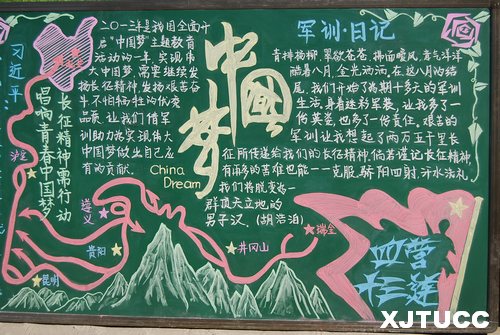 习近平
长征精神需行动
唱响青春中国梦
二〇一三年是我国全面开
启“中国梦”主题教育
活动的一年，实现伟
大中国梦，需要继续发
扬长征精神，发扬艰苦奋
斗不怕牺牲的优秀
品质，让我们借军
训助力为实现伟大
中国梦做出自己应
有的贡献。
China
Dream
中国梦
军训·日记
青排杨柳，翠欲苍苍，拂面嘘风，意气洋洋
酷暑八月，金光洒洒，在这八月的结
尾，我们开始了为期十多天的军训
生活，身着迷彩军装，让我多了一
份英姿，也多了一份责任，艰苦的
军训让我想起了两万五千里长
征所传递给我们的长征精神，倘若谨记长征精神
有再多的苦难也能一一克服，骄阳四射，汗水洗礼
我们将脱变为一
群顶天立地的
男子汉。(胡浩泊)
泸定
遵义
贵阳
昆明
井冈山
瑞金
四营
十三连
XJTUCC